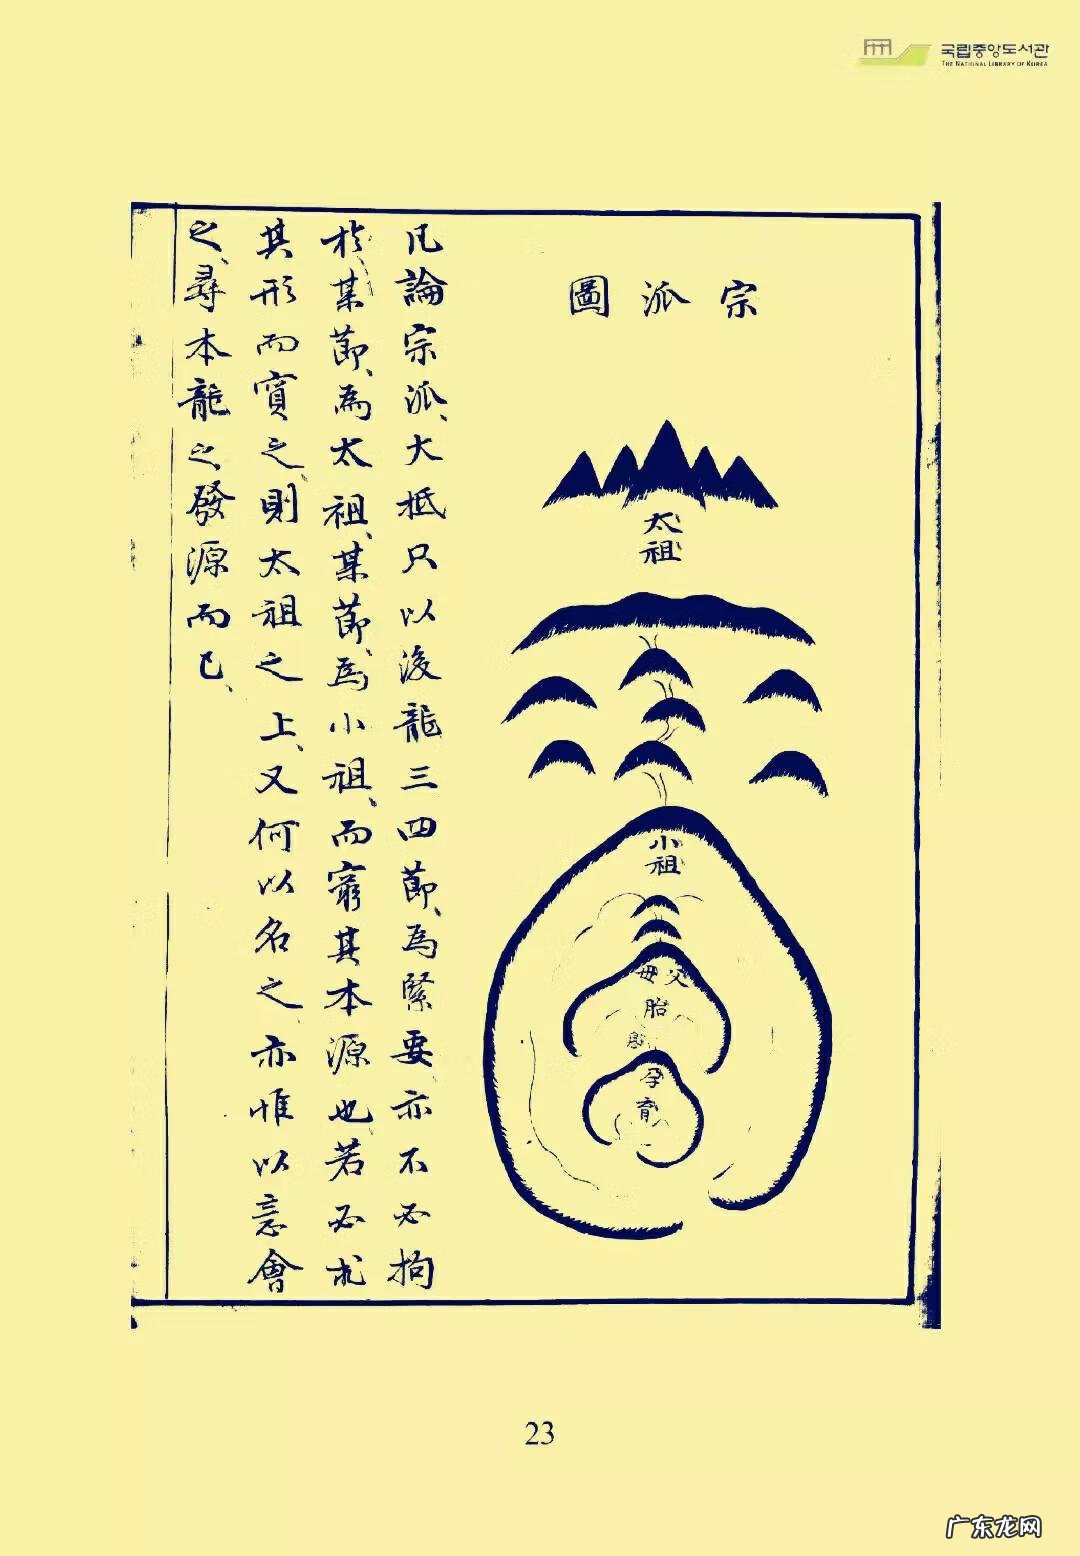 국립중앙도서관
THE NATIONAL LIBRARY OF KOREA
宗派圖
太祖
小祖
父母
胎
孕育
凡論宗派、大抵只以後龍三四節、為緊要亦不必拘
於、某節、為太祖、某節、為小祖、而窮其本源也若必求
其形而實之、則太祖之上、又何以名之、亦惟以意會
之、尋本龍之發源而已、
23
广东龙网